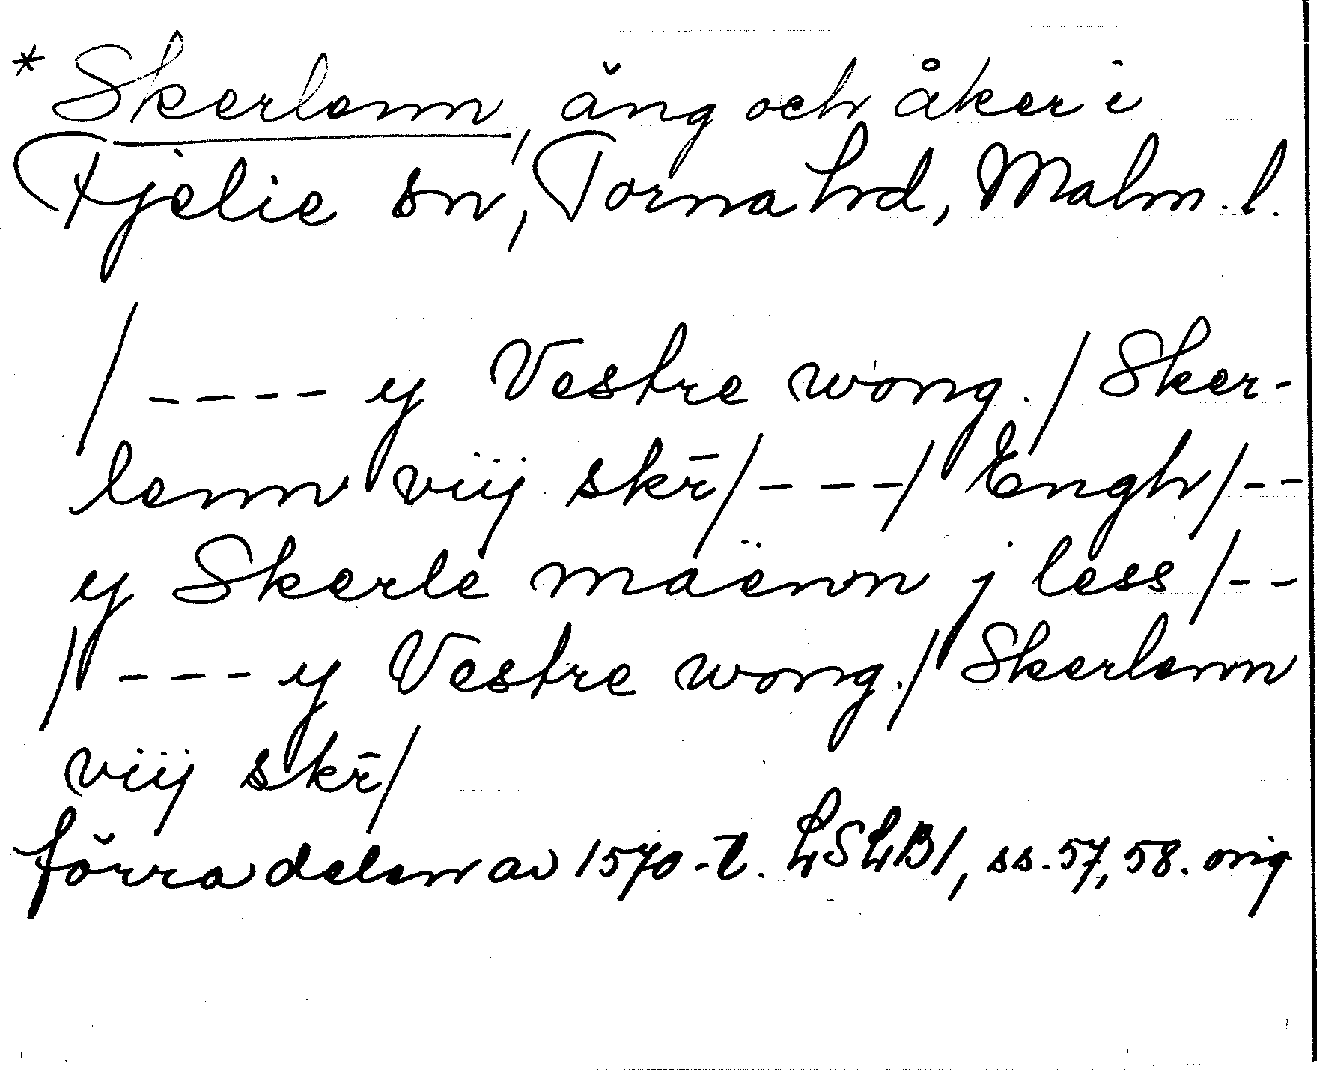 * Skerlenn, äng och åker i
Fjelie sn, Torna hrd, Malm. l.
/---- y Vestre wong./Sker-
lenn viij skr̄/---/Engh/--
y Skerle maënn j less/--
/---- y Vestre wong./Skerlenn
viij skr̄/
förra delen av 1570-t. LSLB1, ss. 57, 58. orig